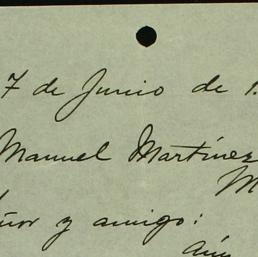 7 de Junio de 1
Manuel Martínez
M
ñor y amigo:
Aún